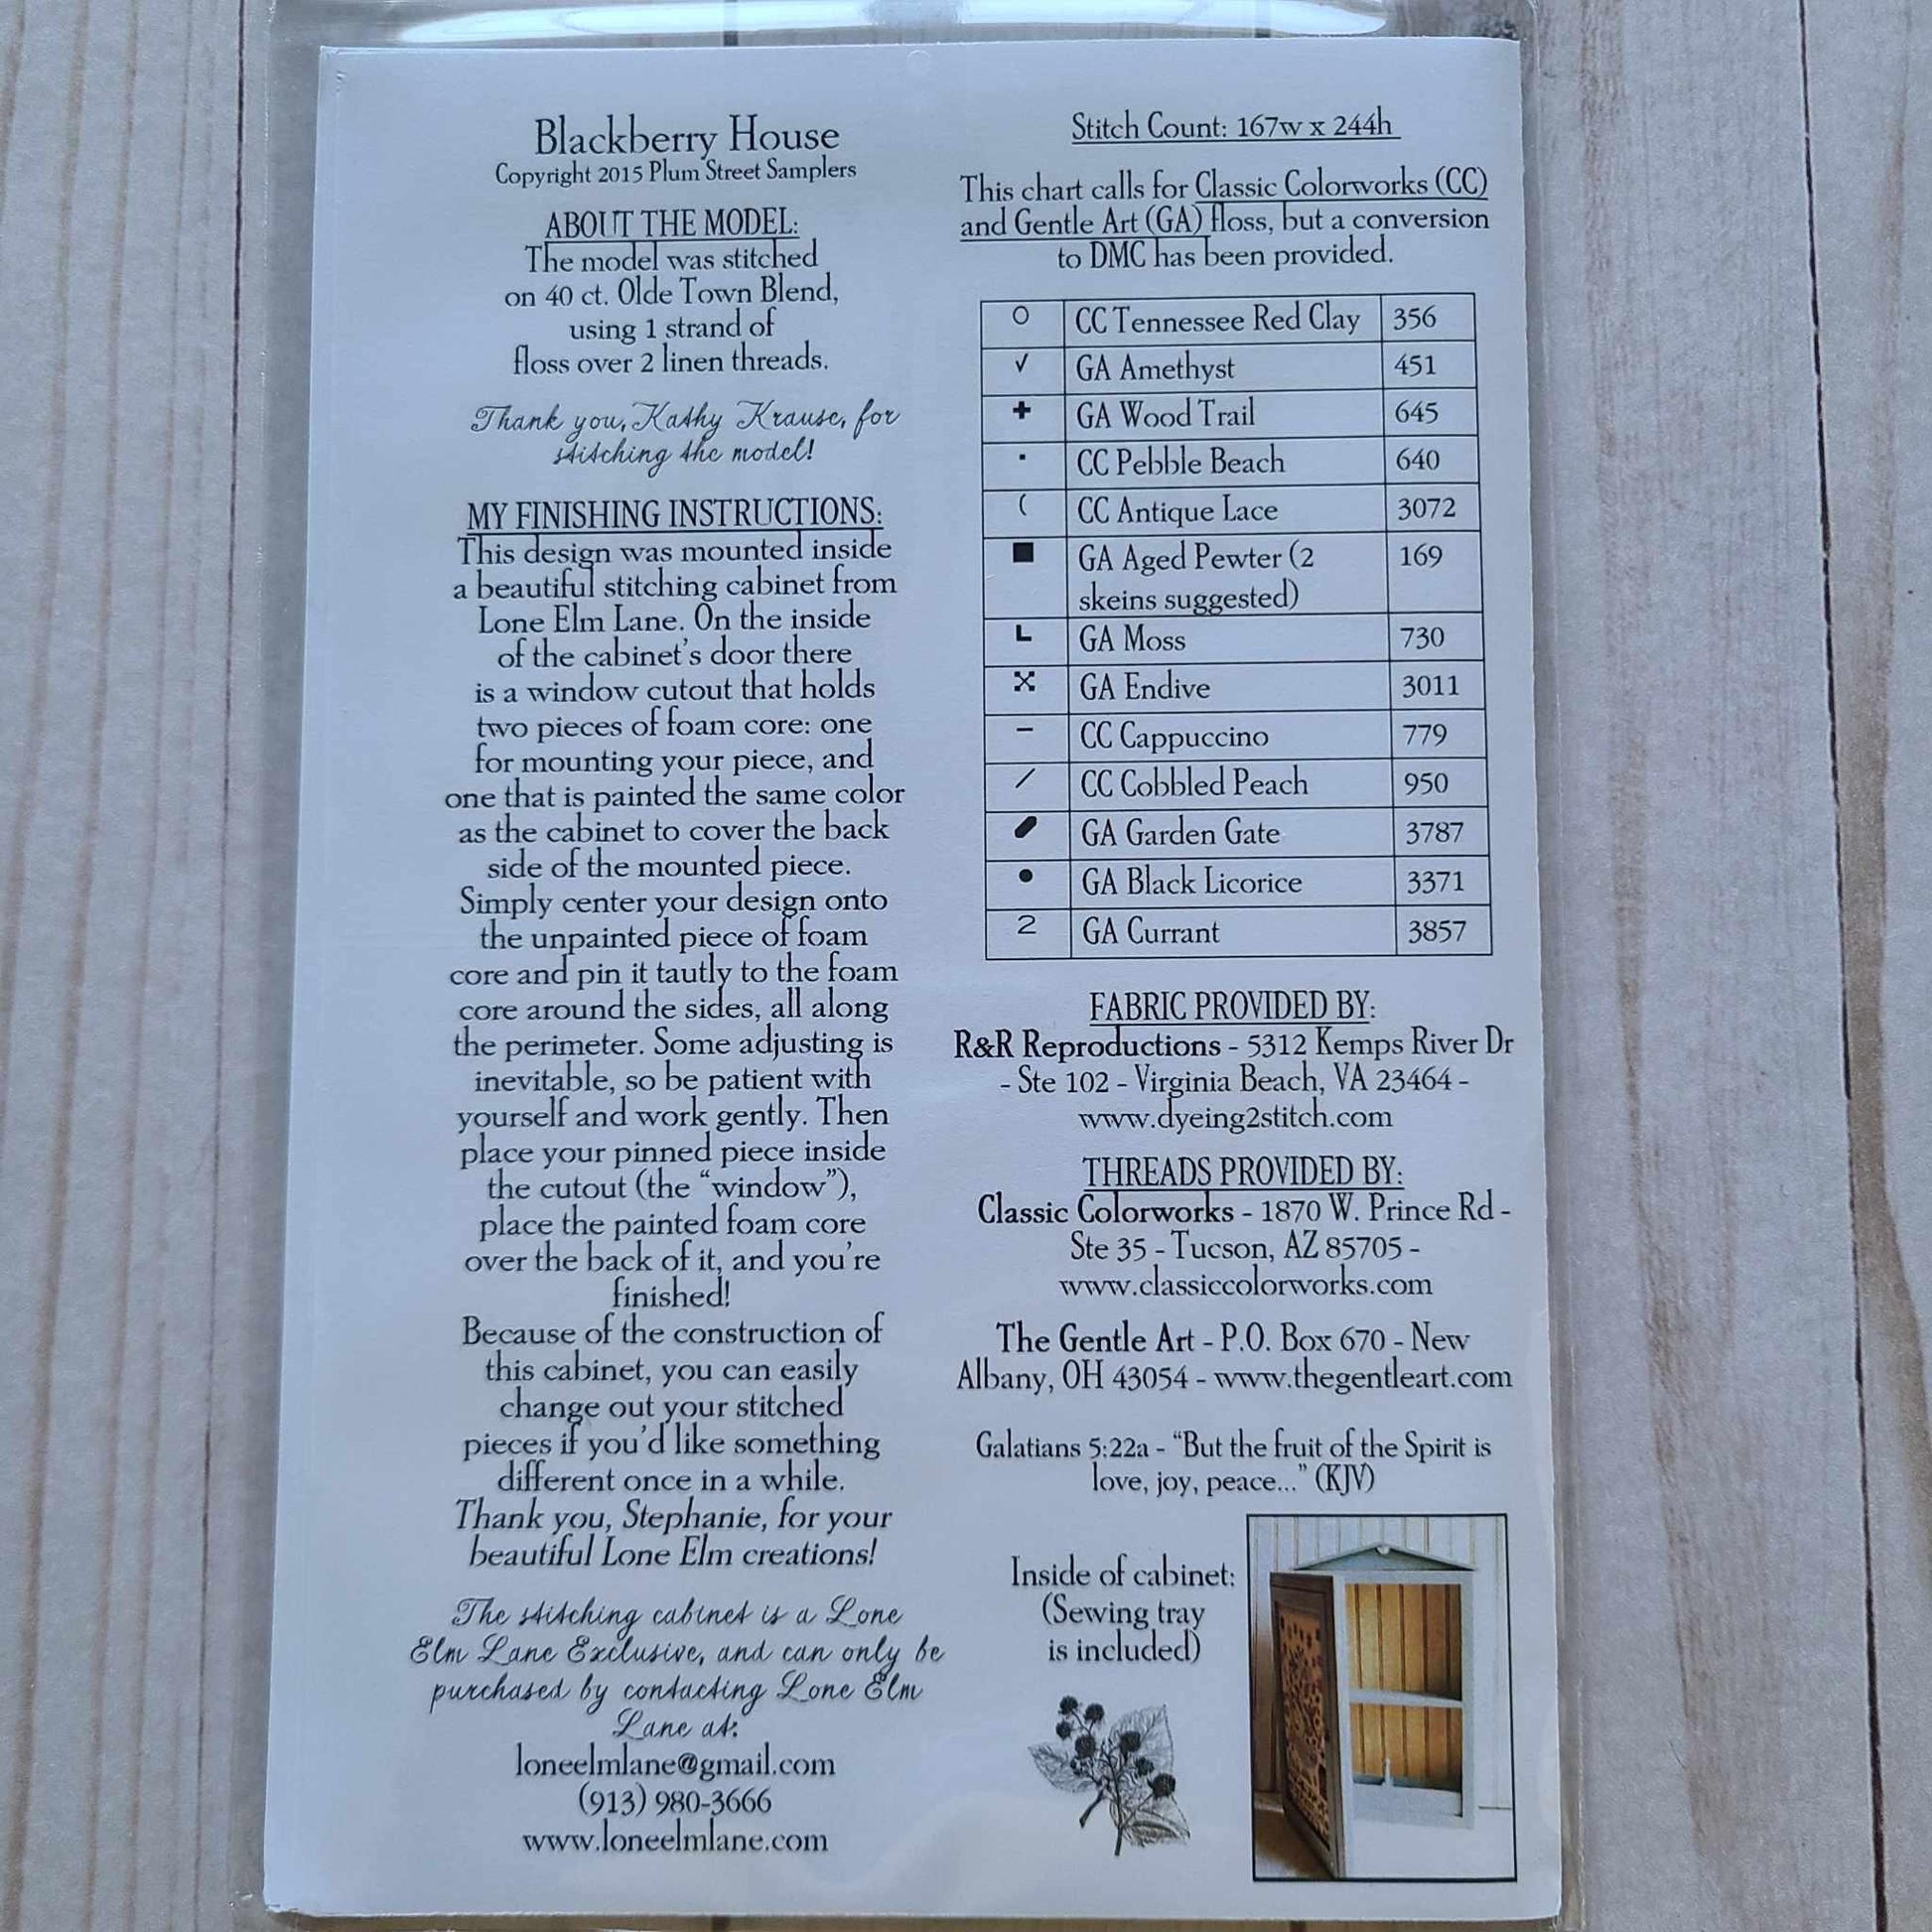 Blackberry House
Copyright 2015 Plum Street Samplers
ABOUT THE MODEL:
The model was stitched
on 40 ct. Olde Town Blend,
using 1 strand of
floss over 2 linen threads.
Thank you, Kathy Krause, for
stitching the model!
MY FINISHING INSTRUCTIONS:
This design was mounted inside
a beautiful stitching cabinet from
Lone Elm Lane. On the inside
of the cabinet's door there
is a window cutout that holds
two pieces of foam core: one
for mounting your piece, and
one that is painted the same color
as the cabinet to cover the back
side of the mounted piece.
Simply center your design onto
the unpainted piece of foam
core and pin it tautly to the foam
core around the sides, all along
the perimeter. Some adjusting is
inevitable, so be patient with
yourself and work gently. Then
place your pinned piece inside
the cutout (the “window”),
place the painted foam core
over the back of it, and you're
finished!
Because of the construction of
this cabinet, you can easily
change out your stitched
pieces if you'd like something
different once in a while.
Thank you, Stephanie, for your
beautiful Lone Elm creations!
The stitching cabinet is a Lone
Elm Lane Exclusive, and can only be
purchased by contacting Lone Elm
Lane at:
loneelmlane@gmail.com
(913) 980-3666
www.loneelmlane.com
Stitch Count: 167w x 244h
This chart calls for Classic Colorworks (CC)
and Gentle Art (GA) floss, but a conversion
to DMC has been provided.
O CC Tennessee Red Clay 356
√ GA Amethyst 451
+ GA Wood Trail 645
· CC Pebble Beach 640
( CC Antique Lace 3072
■ GA Aged Pewter (2 169
skeins suggested)
L GA Moss 730
X GA Endive 3011
– CC Cappuccino 779
/ CC Cobbled Peach 950
GA Garden Gate 3787
● GA Black Licorice 3371
2 GA Currant 3857
FABRIC PROVIDED BY:
R&R Reproductions - 5312 Kemps River Dr
- Ste 102 - Virginia Beach, VA 23464 -
www.dyeing2stitch.com
THREADS PROVIDED BY:
Classic Colorworks - 1870 W. Prince Rd -
Ste 35 - Tucson, AZ 85705 -
www.classiccolorworks.com
The Gentle Art - P.O. Box 670 - New
Albany, OH 43054 - www.thegentleart.com
Galatians 5:22a - “But the fruit of the Spirit is
love, joy, peace...” (KJV)
Inside of cabinet:
(Sewing tray
is included)